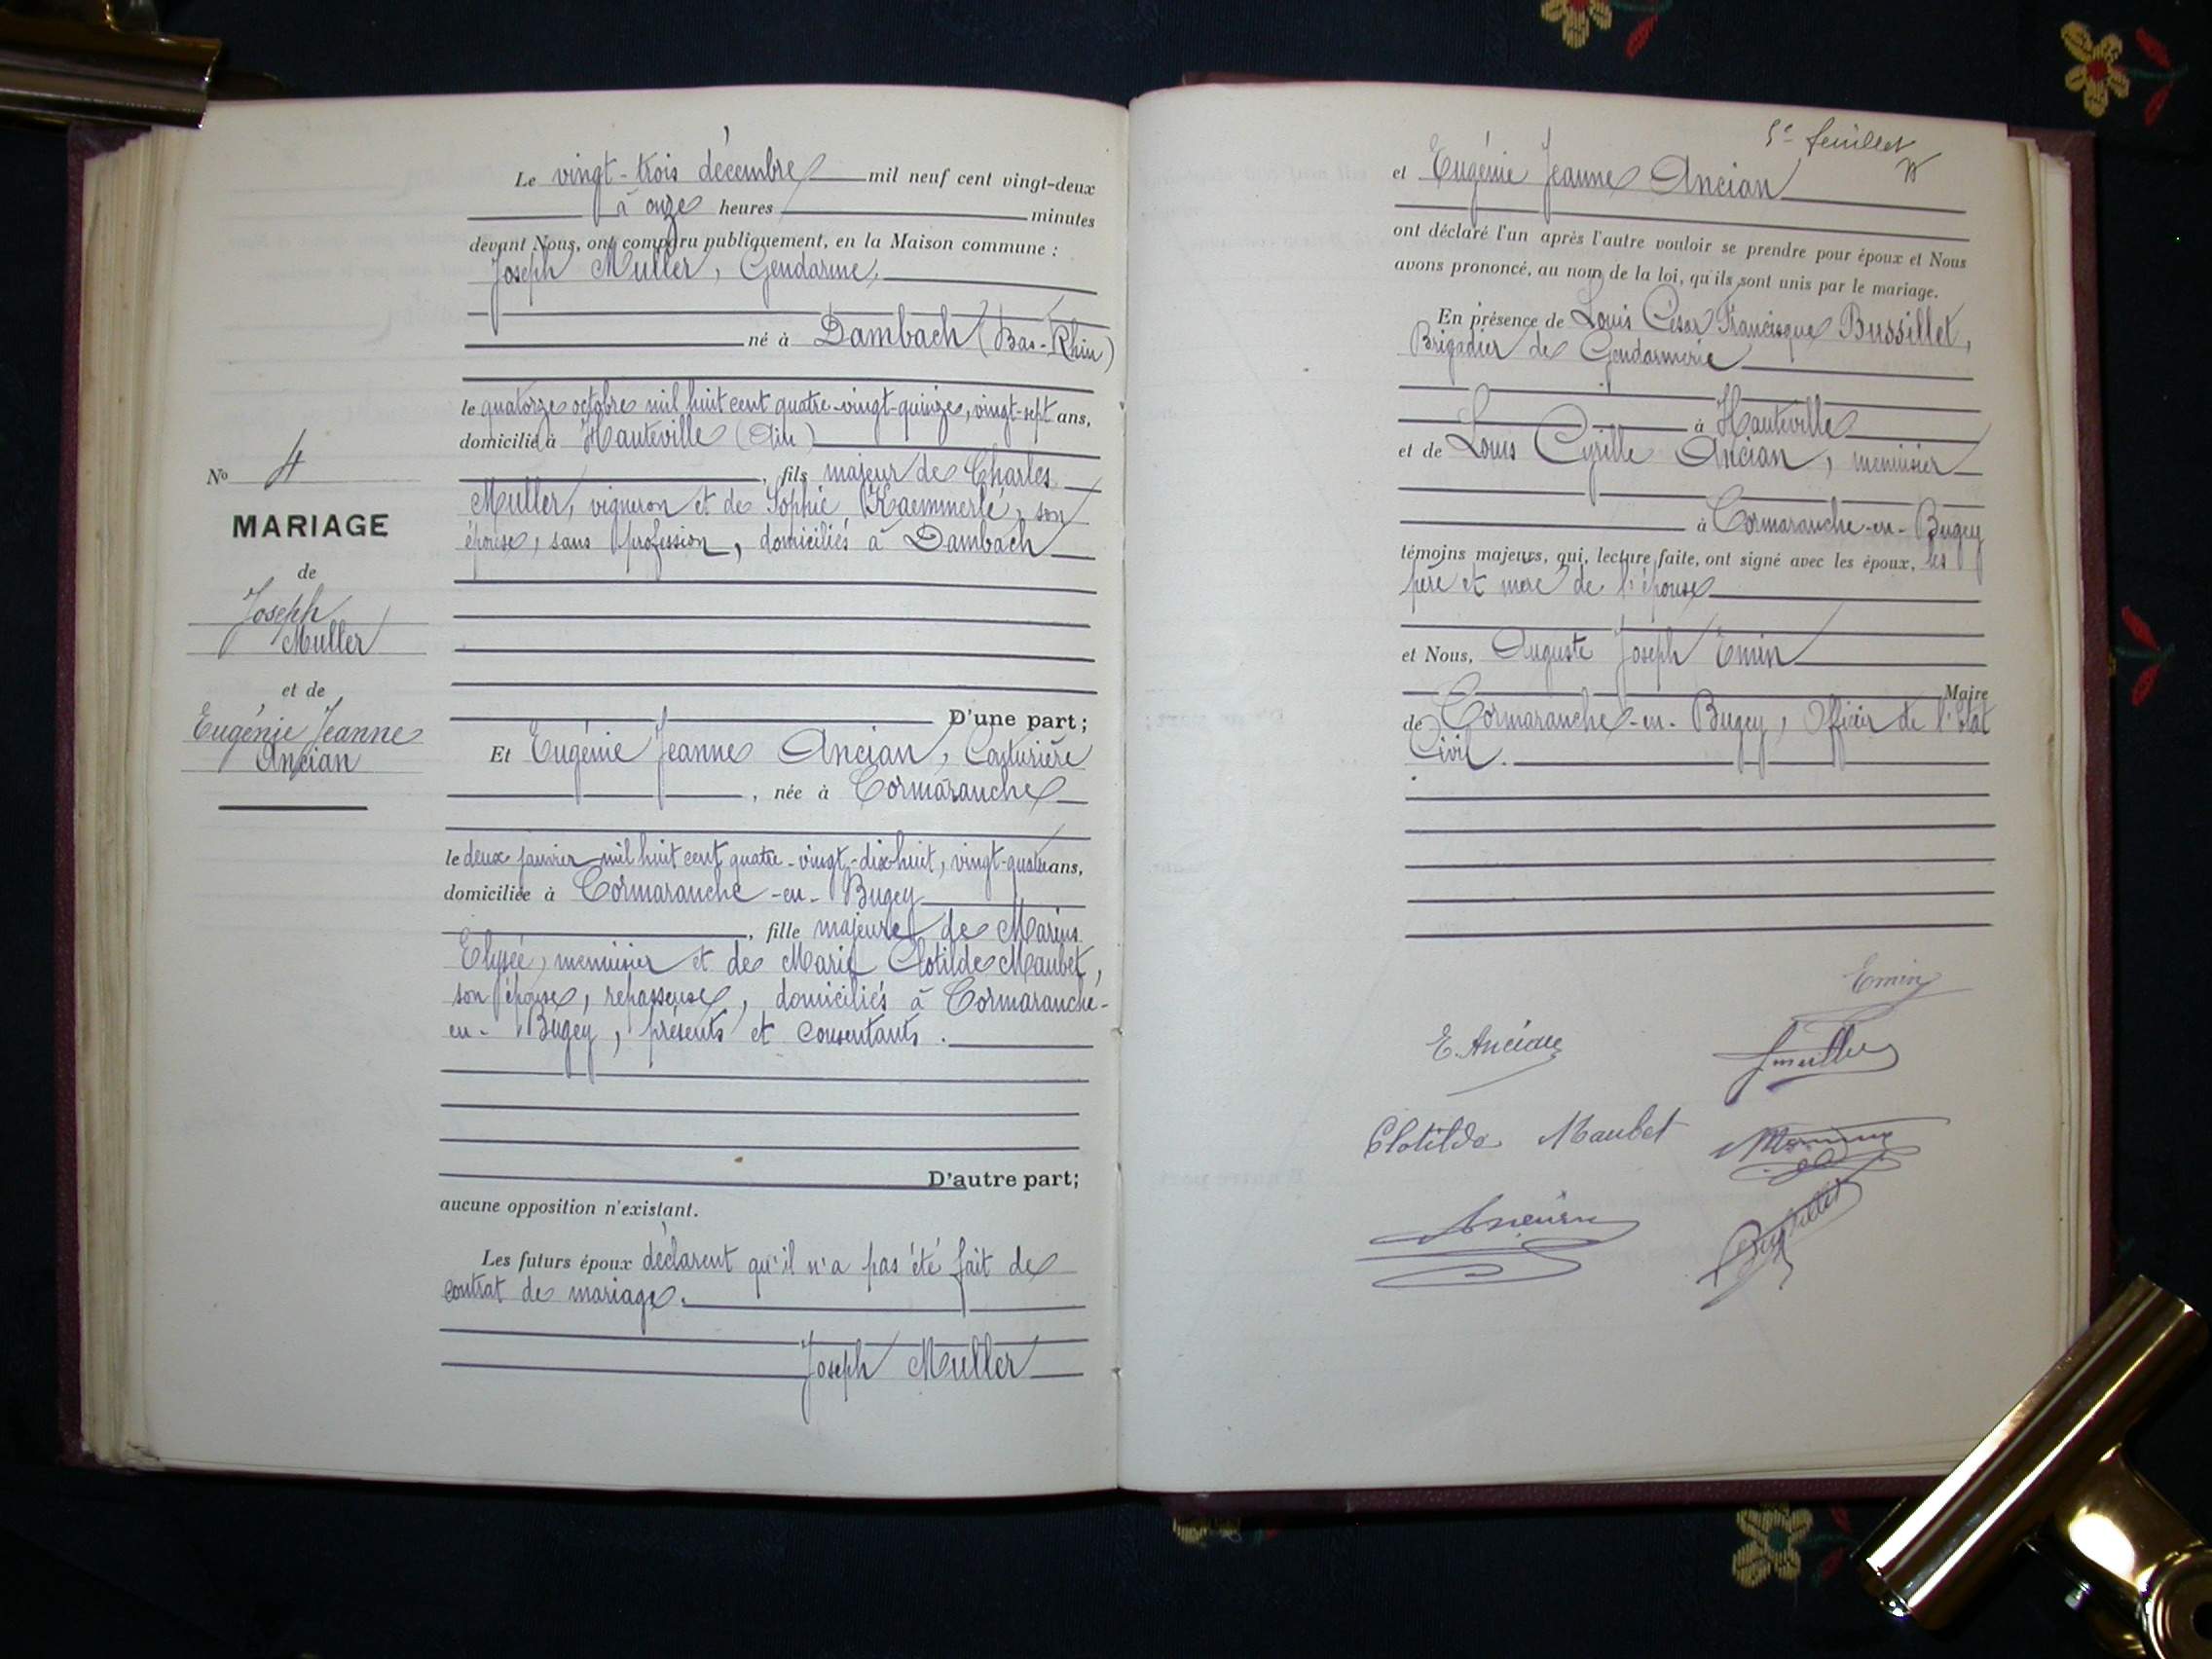 Le vingt-trois décembre mil neuf cent vingt-deux
à onze heures minutes
devant Nous, ont comparu publiquement, en la Maison commune :
Joseph Muller, Gendarme,
né à Dambach (Bas-Rhin)
le quatorze octobre mil huit cent quatre-vingt-quinze, vingt-sept ans,
domicilié à Hauteville (Ain)
, fils majeur de Charles
Muller, vigneron et de Sophie Kaemmerlé, son
épouse, sans profession, domiciliés à Dambach
D'une part;
Et Eugénie Jeanne Ancian, Couturière
, née à Cormaranche
le deux janvier mil huit cent quatre-vingt-dix-huit, vingt-quatre ans,
domiciliée à Cormaranche-en-Bugey
, fille majeure de Marius
Elysée, menuisier et de Marie Clotilde Maubet,
son épouse, repasseuse, domiciliés à Cormaranche-
en-Bugey, présents et consentants.
D'autre part;
aucune opposition n'existant.
Les futurs époux déclarent qu'il n'a pas été fait de
contrat de mariage.
Joseph Muller
No 4
MARIAGE
de
Joseph
Muller
et de
Eugénie Jeanne
Ancian
5e feuillet
et Eugénie Jeanne Ancian
ont déclaré l'un après l'autre vouloir se prendre pour époux et Nous
avons prononcé, au nom de la loi, qu'ils sont unis par le mariage.
En présence de Louis César Francisque Bussillet,
Brigadier de Gendarmerie
à Hauteville
et de Louis Cyrille Ancian, menuisier
à Cormaranche-en-Bugey
témoins majeurs, qui, lecture faite, ont signé avec les époux, les
père et mère de l'épouse
et Nous, Auguste Joseph Emin
Maire
de Cormaranche-en-Bugey, Officier de l'Etat
Civil.
Emin
E. Ancian
J muller
Clotilde Maubet
Ancian
Bussillet